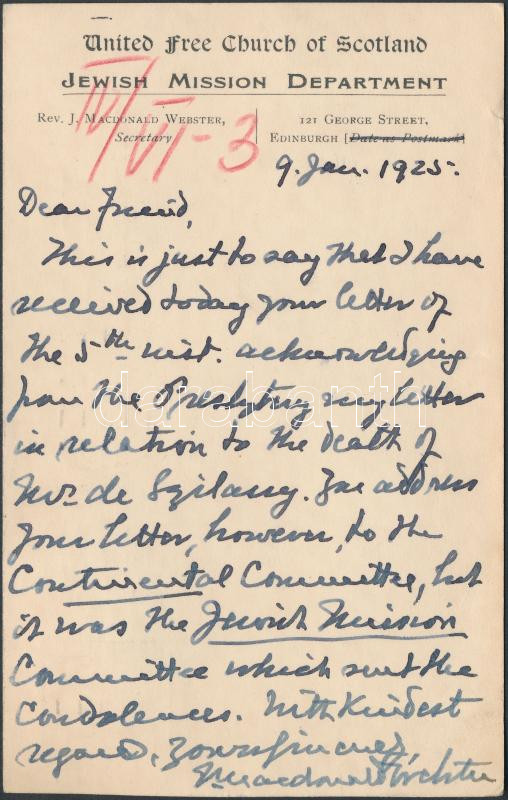 United Free Church of Scotland
JEWISH MISSION DEPARTMENT
REV. J. MACDONALD WEBSTER,
Secretary
121 GEORGE STREET,
EDINBURGH [Date as Postmark]
IV/VI-3
9. Jan. 1925.
Dear Friend,
This is just to say that I have
received today your letter of
the 5th inst. acknowledging
from the Presbytery my letter
in relation to the death of
Mr. de Szilassy. You address
your letter, however, to the
Continental Committee, but
it was the Jewish Mission
Committee which sent the
Condolences. With kindest
regard, Yours sincerely,
J. Macdonald Webster
darabanth